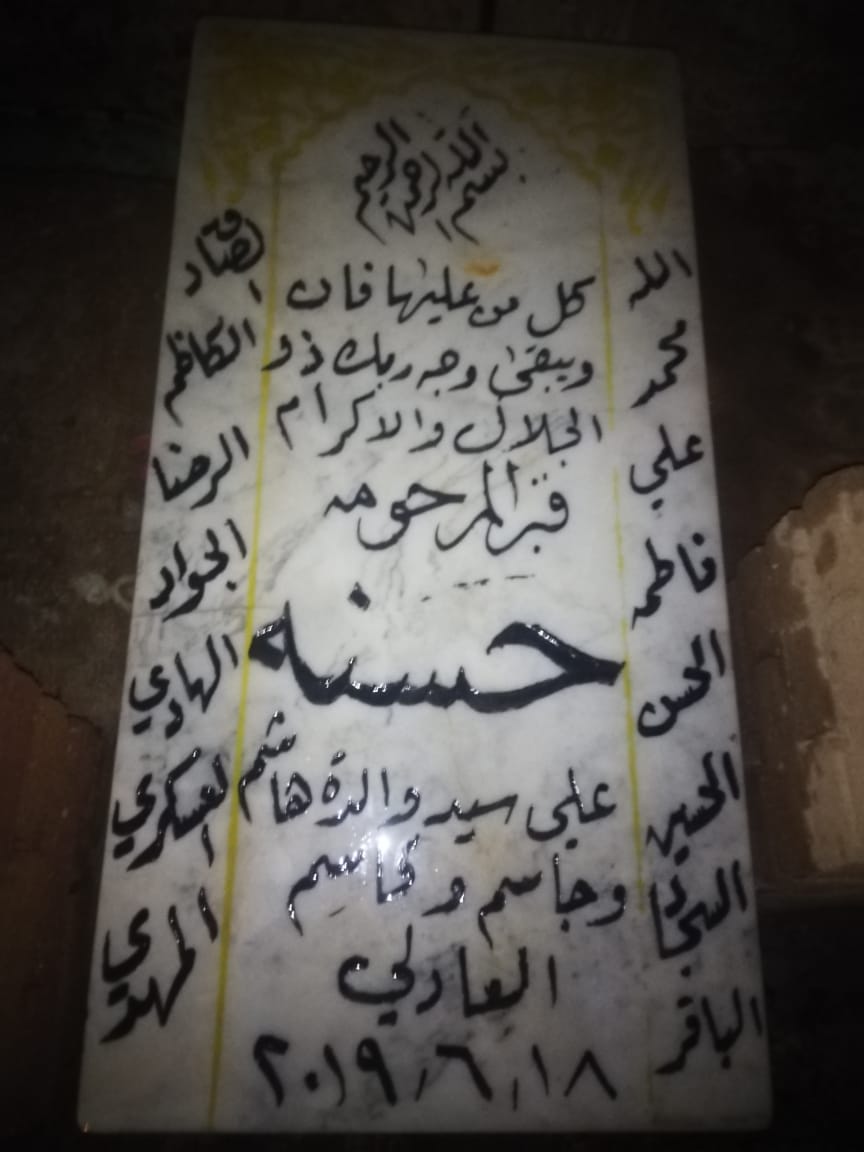 بسم الله الرحمن الرحيم
كل من عليها فان
ويبقى وجه ربك ذو
الجلال والاكرام
قبر المرحومه
حسنه
علي سيد والدة هاشم
وجاسم وكاسم
العادلي
٢٠١٩/٦/١٨
الله
محمد
علي
فاطمه
الحسن
الحسين
السجاد
الباقر
الصادق
الكاظم
الرضا
الجواد
الهادي
العسكري
المهدي